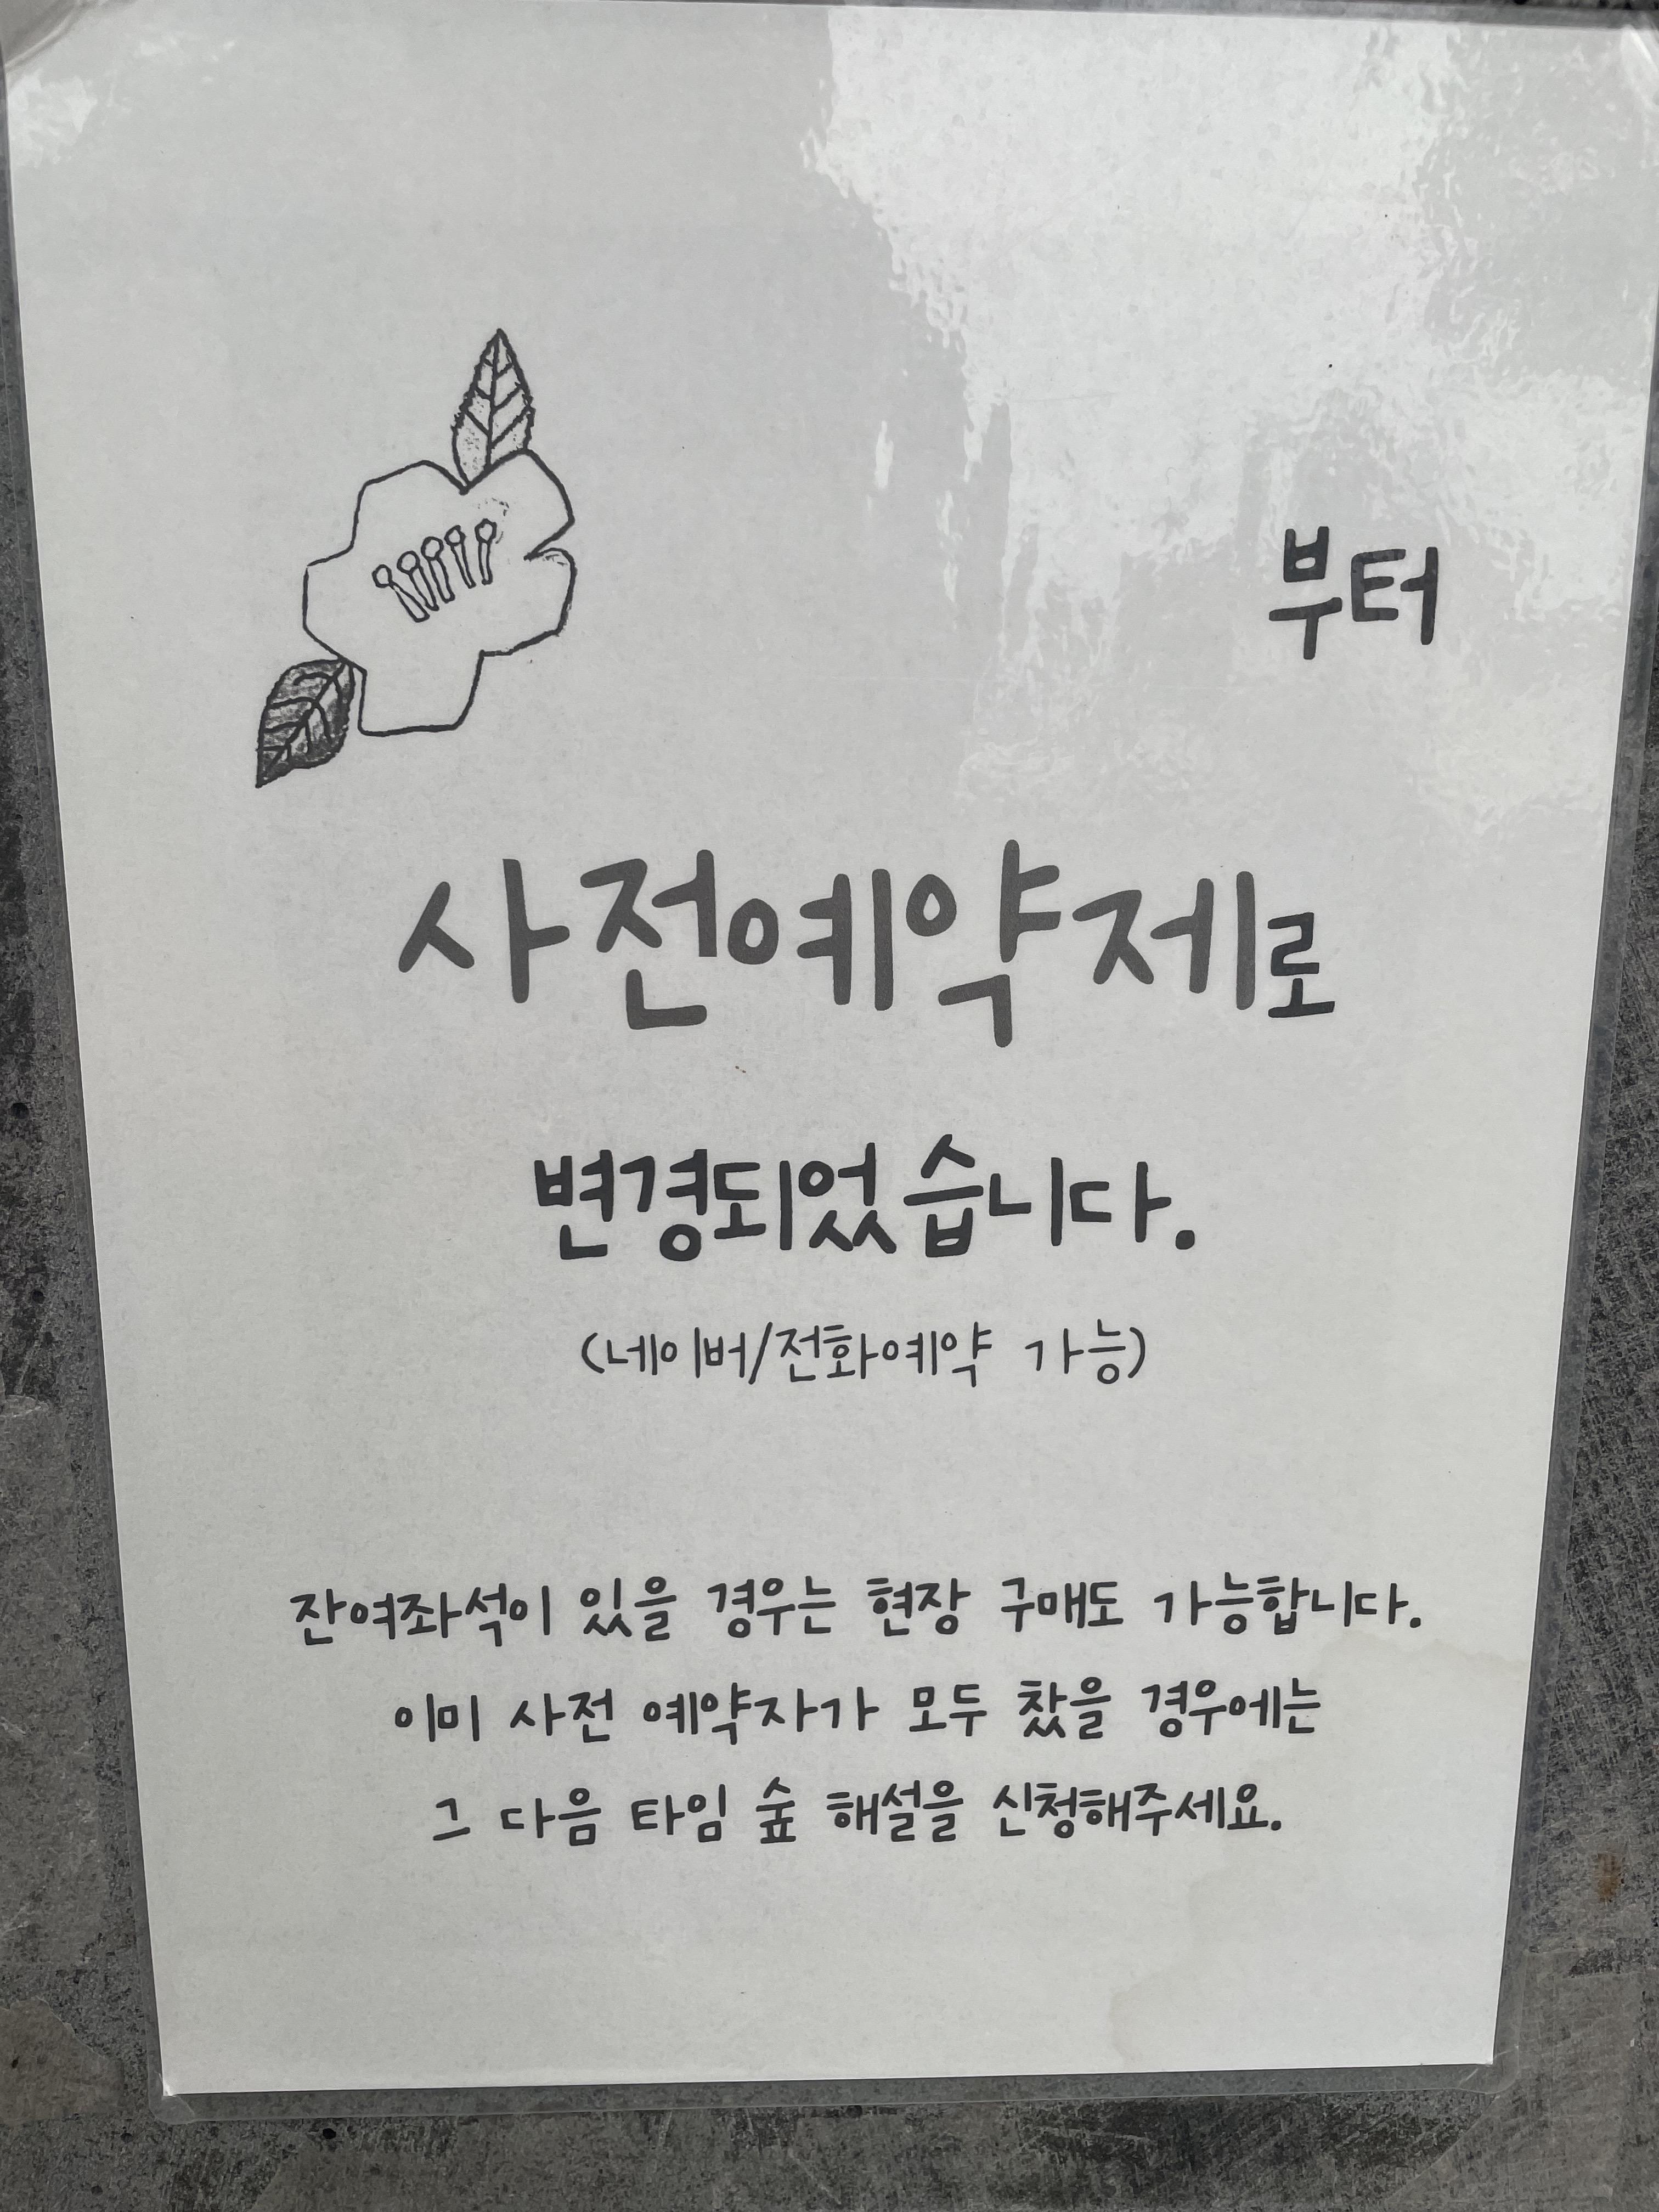 부터
사전예약제로
변경되었습니다.
(네이버/전화예약 가능)
잔여좌석이 있을 경우는 현장 구매도 가능합니다.
이미 사전 예약자가 모두 찼을 경우에는
그 다음 타임 숲 해설을 신청해주세요.